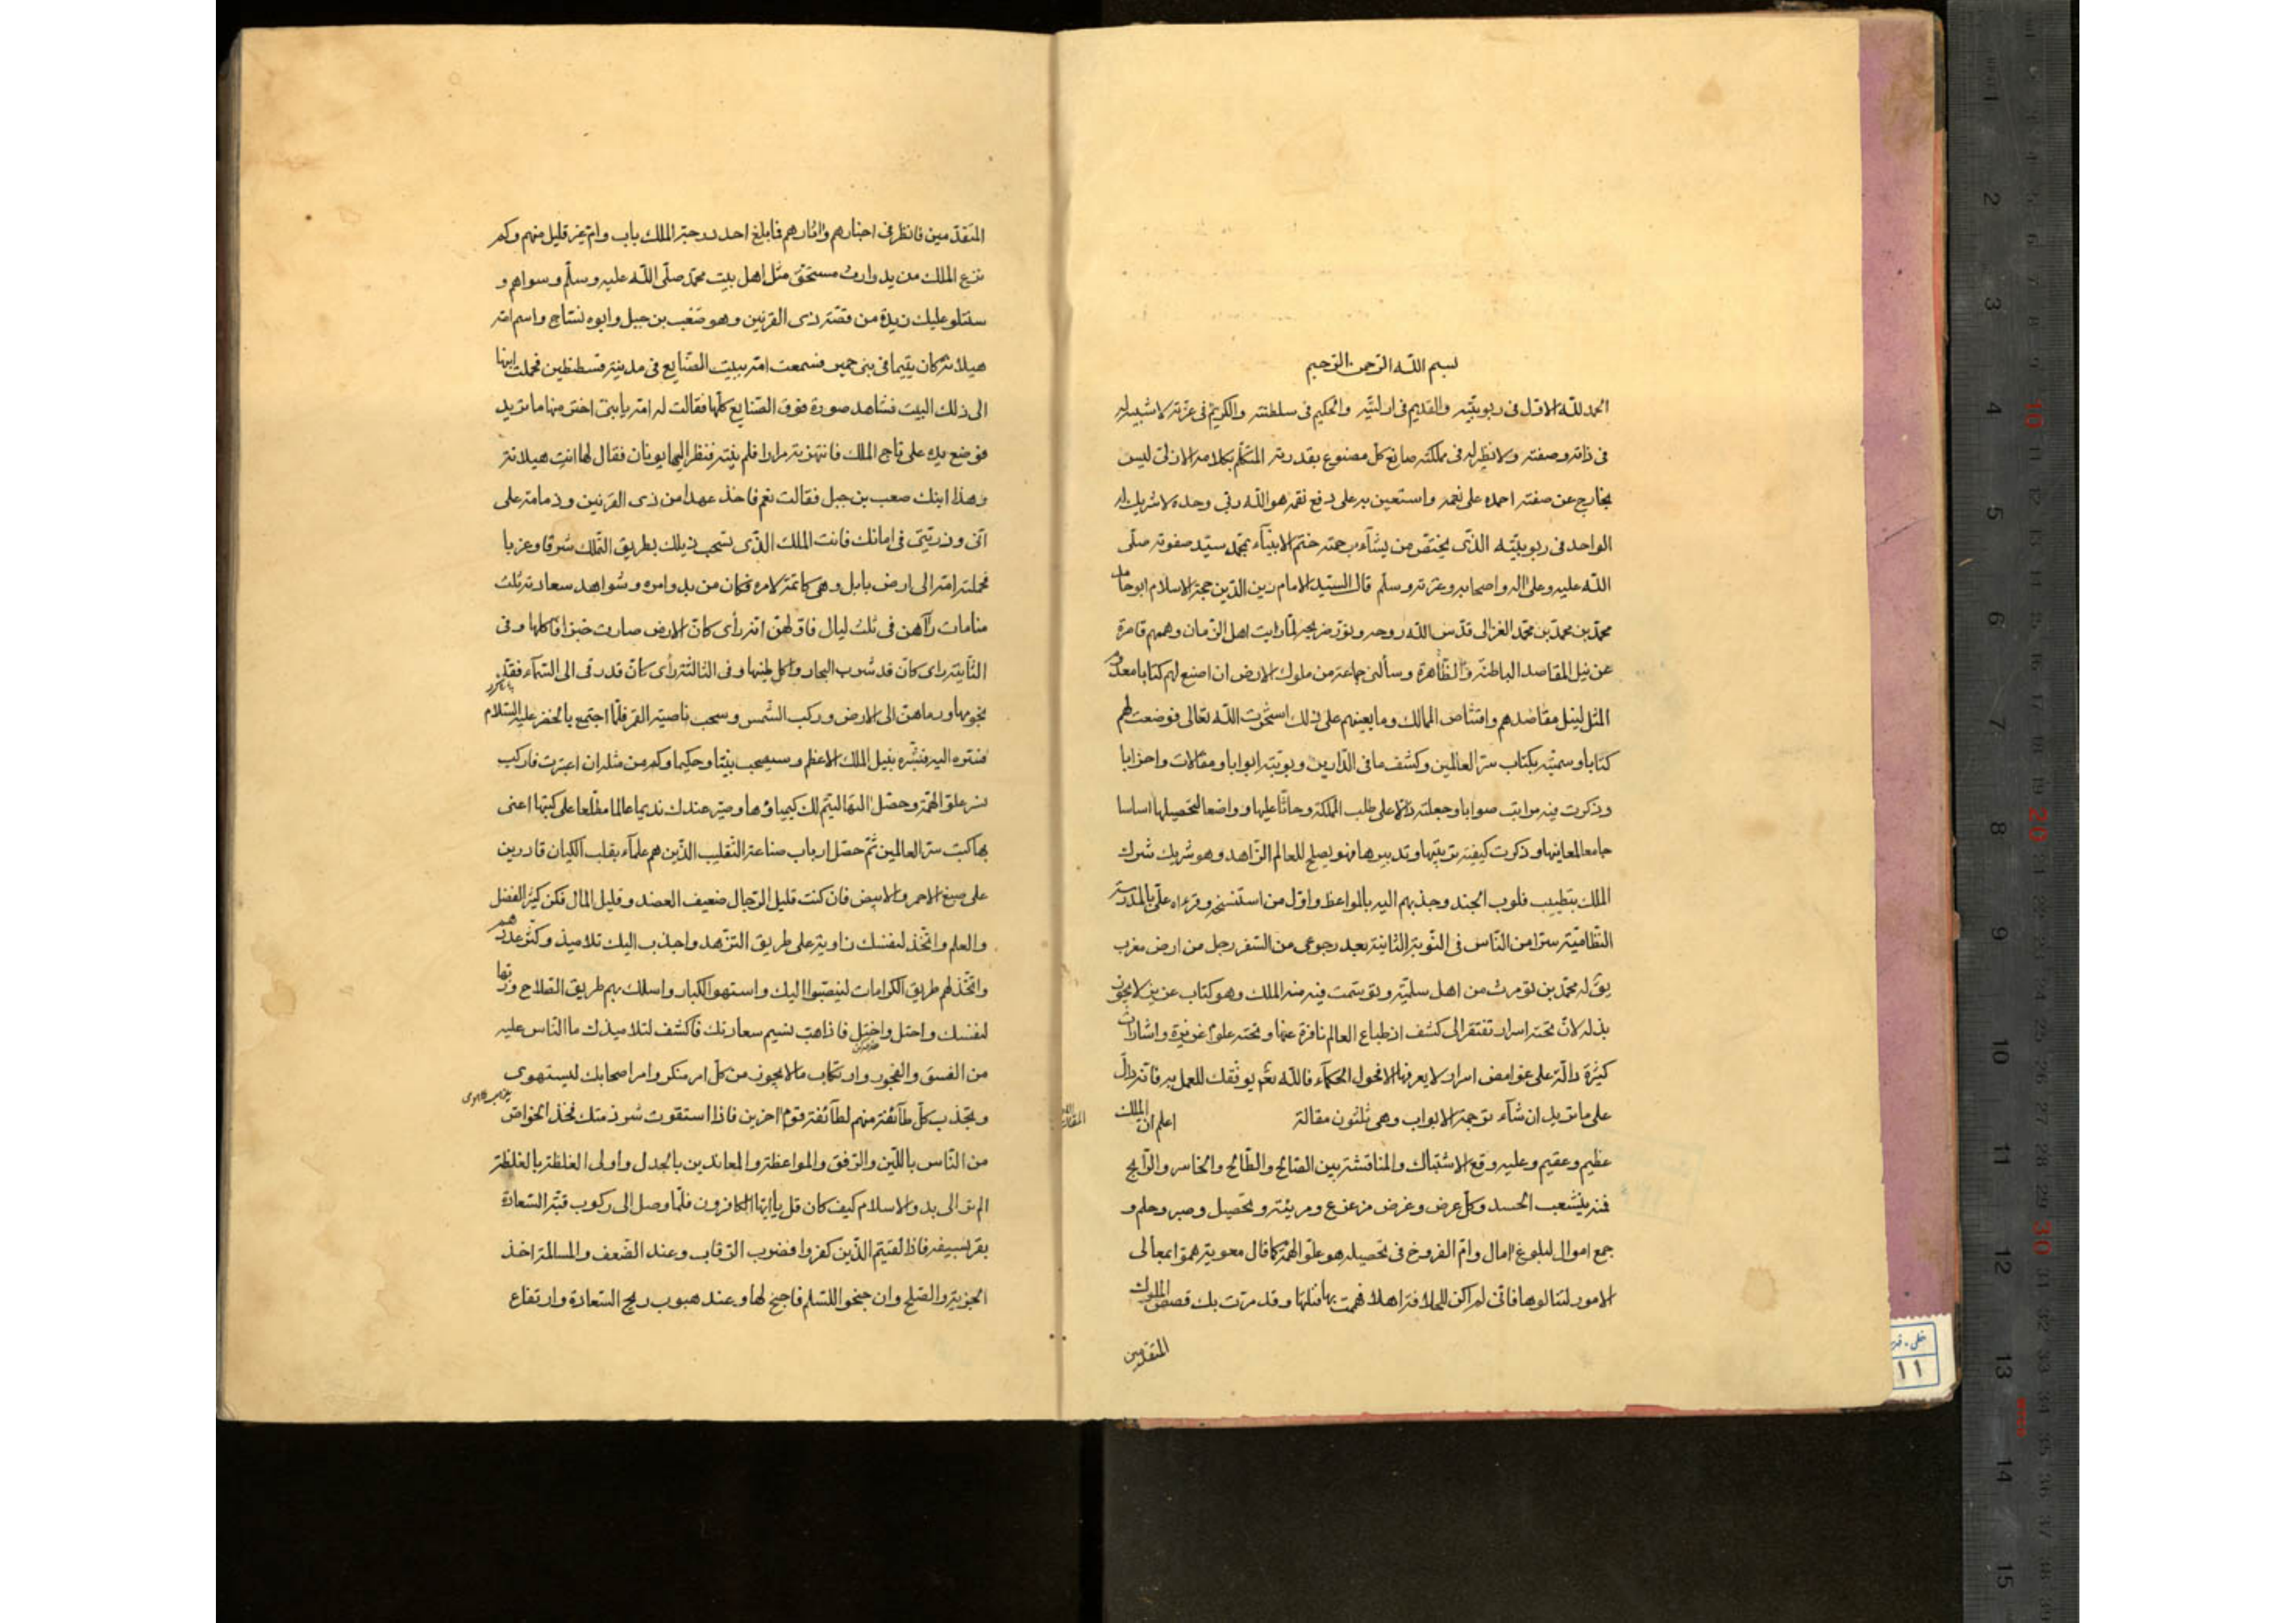 بسم الله الرحمن الرحيم
الحمد لله الاول فى ربوبيّته والقديم فى ازليّته والحكيم فى سلطنته والكريم فى عزّته لا شبيه له
فى ذاته وصفته ولا نظير له فى مملكته صانع كلّ مصنوع بقدرته المتكلّم بكلامه الازلى ليس
بخارج عن صفته احمده على نعمه واستعين به على دفع نقمه هو الله ربّى وحده لا شريك له
الواحد فى ربوبيّته الذى يختصّ من يشآء برحمته ختم الانبيآء بمحمّد سيّد صفوته صلّى
الله عليه وعلى اله واصحابه وعترته وسلّم قال السيّد الامام زين الدّين حجّة الاسلام ابو حامد
محمّد بن محمّد بن محمّد الغزالى قدّس الله روحه ونوّر ضريحه لمّا رايت اهل الزّمان وهممهم قاصرة
عن نيل المقاصد الباطنة والظّاهرة وسألنى جماعة من ملوك الارض ان اصنع لهم كتابا معدوم
المثل لنيل مقاصدهم واقتناص الممالك وما يعينهم على ذلك استخرت الله تعالى فوضعت لهم
كتابا وسمّيته بكتاب سرّ العالمين وكشف ما فى الدّارين وبوّبته ابوابا ومقالات واحزابا
وذكرت فيه مراتب صوابا وجعلته دالّا على طلب المملكة وحاثّا عليها وواضعا لتحصيلها اساسا
جامعا لمعانيها وذكرت كيفية ترتيبها وتدبيرها فهو يصلح للعالم الزّاهد وهو شريك شرك
الملك بتطييب قلوب الجند وجذبهم اليه بالمواعظ واوّل من استنسخه وقرءاه علىّ بالمدرسة
النّظاميّة سرّا من النّاس فى النّوبة الثّانية بعد رجوعى من السّفر رجل من ارض مغرب
يق له محمّد بن تومرت من اهل سلميّة وتوسّمت فيه منه الملك وهو كتاب عزيز لا يجوز
بذله لانّ تحته اسرار تفتقر الى كشف اذ طباع العالم نافرة عنها وتحته علوم غزيرة واشارات
كثيرة دالّة على غوامض اسرار لا يعرفها الا فحول الحكمآء فالله تع يوفّقك للعمل به فانّه دالّ
على ما تريد ان شآء ترجمة الابواب وهى ثلثون مقالة اعلم ان الملك
عظيم وعقيم وعليه وقع الاشتباك والمناقشة بين الصّالح والطّالح والخاسر والرّابح
فمنه ينشعب الحسد وكلّ عرض وغرض مزعزع ومزيته وتحصيل وصبر وحلم و
جمع اموال لبلوغ امال وامّ الفروخ فى تحصيله هو علوّ الهمّة كما قال معوية همّوا بمعالى
الامور لتنالوها فانّى لم اكن للخلافة اهلا فهممت بها فنلتها وقد مرّت بك قصص الملوك
المتقدّمين
المتقدّمين فانظر فى اخبارهم واثارهم فما بلغ احد درجة الملك باب وام غير قليل منهم وكم
نزع الملك من يد وارث مستحقّ مثل اهل بيت محمّد صلّى الله عليه وسلّم وسواهم و
سنتلو عليك زبدة من قصّة ذى القرنين وهو صعب بن جبل وابوه نسّاج واسم امّه
هيلانة كان يتيما فى بنى حمير فسمعت امّه ببيت الصّنايع فى مدينة قسطنطين فحملت ابنها
الى ذلك البيت فشاهد صورة فوق الصّنايع كلّها فقالت له امّه يا بنى اختر منها ما تريد
فوضع يده على تاج الملك فانتهزته مرارا فلم ينته فنظر اليها يونان فقال لها انت هيلانة
وهذا ابنك صعب بن جبل فقالت نعم فاخذ عهدا من ذى القرنين وذمامة على
انّى وذريّتى فى امانك فانت الملك الذّى تسحب ذيلك بطريق التّملك شرقا وغربا
فحملته امّه الى ارض بابل وهى كاتمة لامره فكان من بدو امره وشواهد سعادته ثلث
منامات رآهن فى ثلث ليال فاوّلهن انّه رأى كانّ الارض صارت خبزا فاكلها وفى
الثّانية راى كانّ قد شرب البحار واكل طينها وفى الثالثة رأى كانّ قد رقى الى السّمآء فقلّد
نجومها ورماهنّ الى الارض وركب الشّمس وسحب ناصية القمر فلمّا اجتمع بالخضر عليه السّلام
فسّره اليه فبشّره بنيل الملك الاعظم وسيصحب نبيّا وحكيما وكم من مثله ان اعتبرت فاركب
علوّ الهمّة وحصّل البها ليتم لك كيمياؤها وصيّر عندك نديما عالما مطّلعا على كتبها اعنى
بها كتب سرّ العالمين ثمّ حصّل ارباب صناعة التّقليب الذّين هم علمآء بقلب الكيان قادرين
على صبغ الاحمر والابيض فان كنت قليل الرّجال ضعيف العضد وقليل المال فكن كثير الفضل
والعلم واتّخذ لنفسك زاوية على طريق التزّهد واجذب اليك تلاميذ وكثّر عددهم
واتّخذ لهم طريق الكرامات لينصبّوا اليك واستهو الكبار واسلك بهم طريق الصّلاح ورتّبها
لنفسك واحتل واختل فاذا هبّ نسيم سعادتك فاكشف لتلاميذك ما النّاس عليه
من الفسق والفجور وارتكاب ما لا يجوز من كلّ امر منكر وامر اصحابك ليستهوى
ويجذب كلّ طآئفة منهم لطآئفة قوم اخرين فاذا استقوت شرذمتك فخذ الخواصّ
من النّاس باللّين والرّفق والمواعظة والمعاندين بالجدل واولى الغلظة بالغلظة
الم تر الى بدو الاسلام كيف كان قل يا ايّها الكافرون فلمّا وصل الى ركوب قبّة السّعادة
بقر بسيفه فاذا لقيتم الذّين كفروا فضرب الرّقاب وعند الضّعف والمسالمة اخذ
الجزية والصّلح وان جنحوا للسّلم فاجنح لها وعند هبوب ريح السّعادة وارتفاع
١١